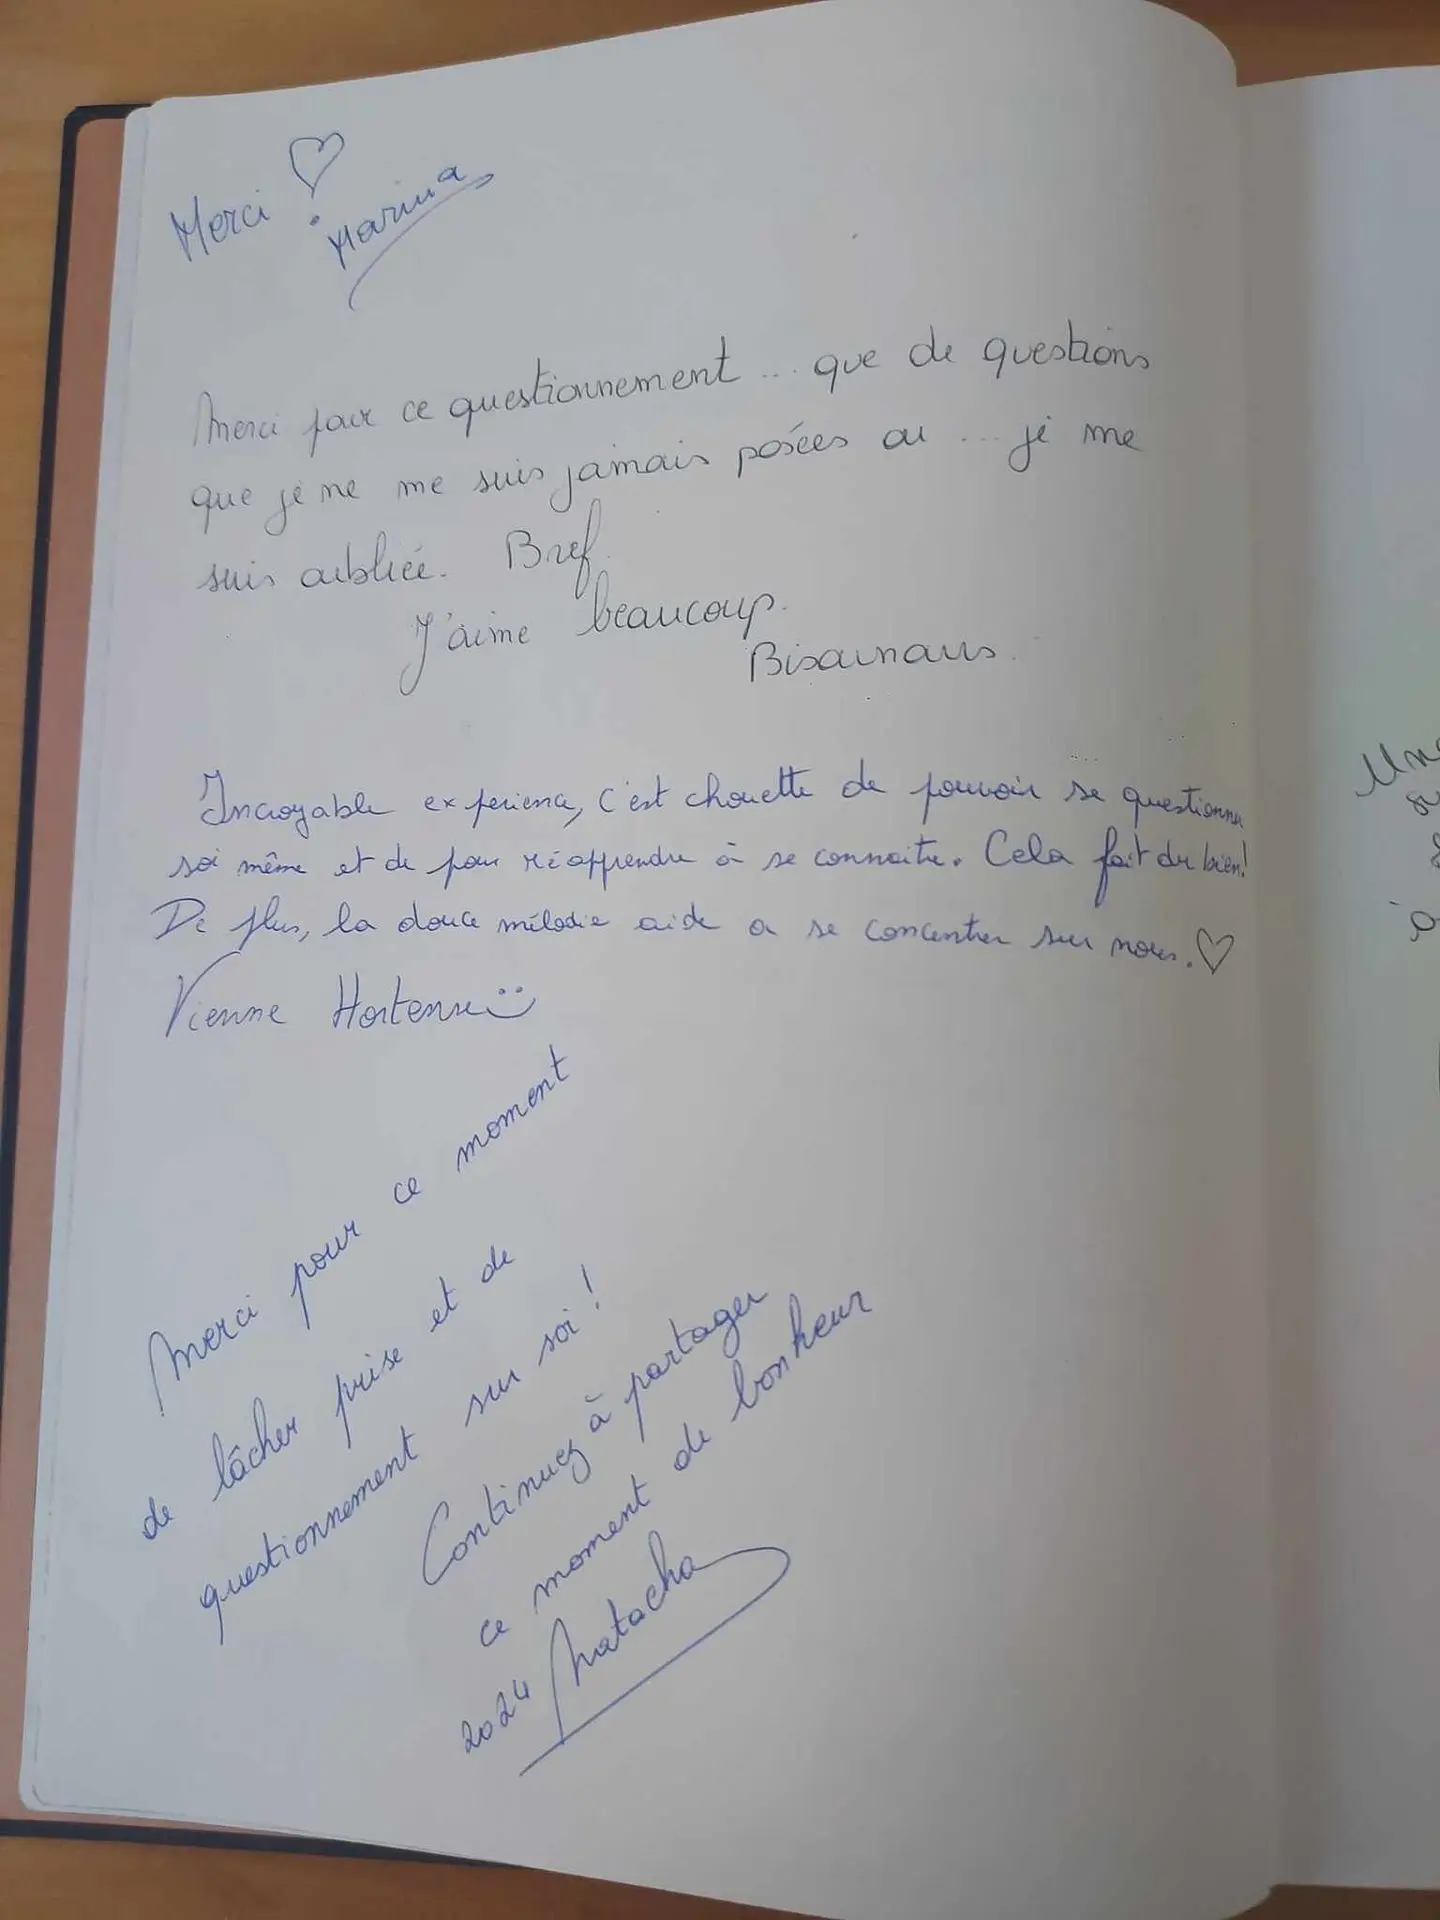 Merci ♡
Marina
Merci pour ce questionnement ... que de questions
que je ne me suis jamais posées ou ... je me
suis oubliée. Bref.
J'aime beaucoup.
Bisounous.
Incroyable experience, c'est chouette de pouvoir se questionner
soi même et de pour réapprendre à se connaitre. Cela fait du bien!
De plus, la douce mélodie aide a se concentrer sur nous. ♡
Vienne Hortense
Merci pour ce moment
de lâcher prise et de
questionnement sur soi !
Continuez à partager
ce moment de bonheur
2024 Natacha
Une